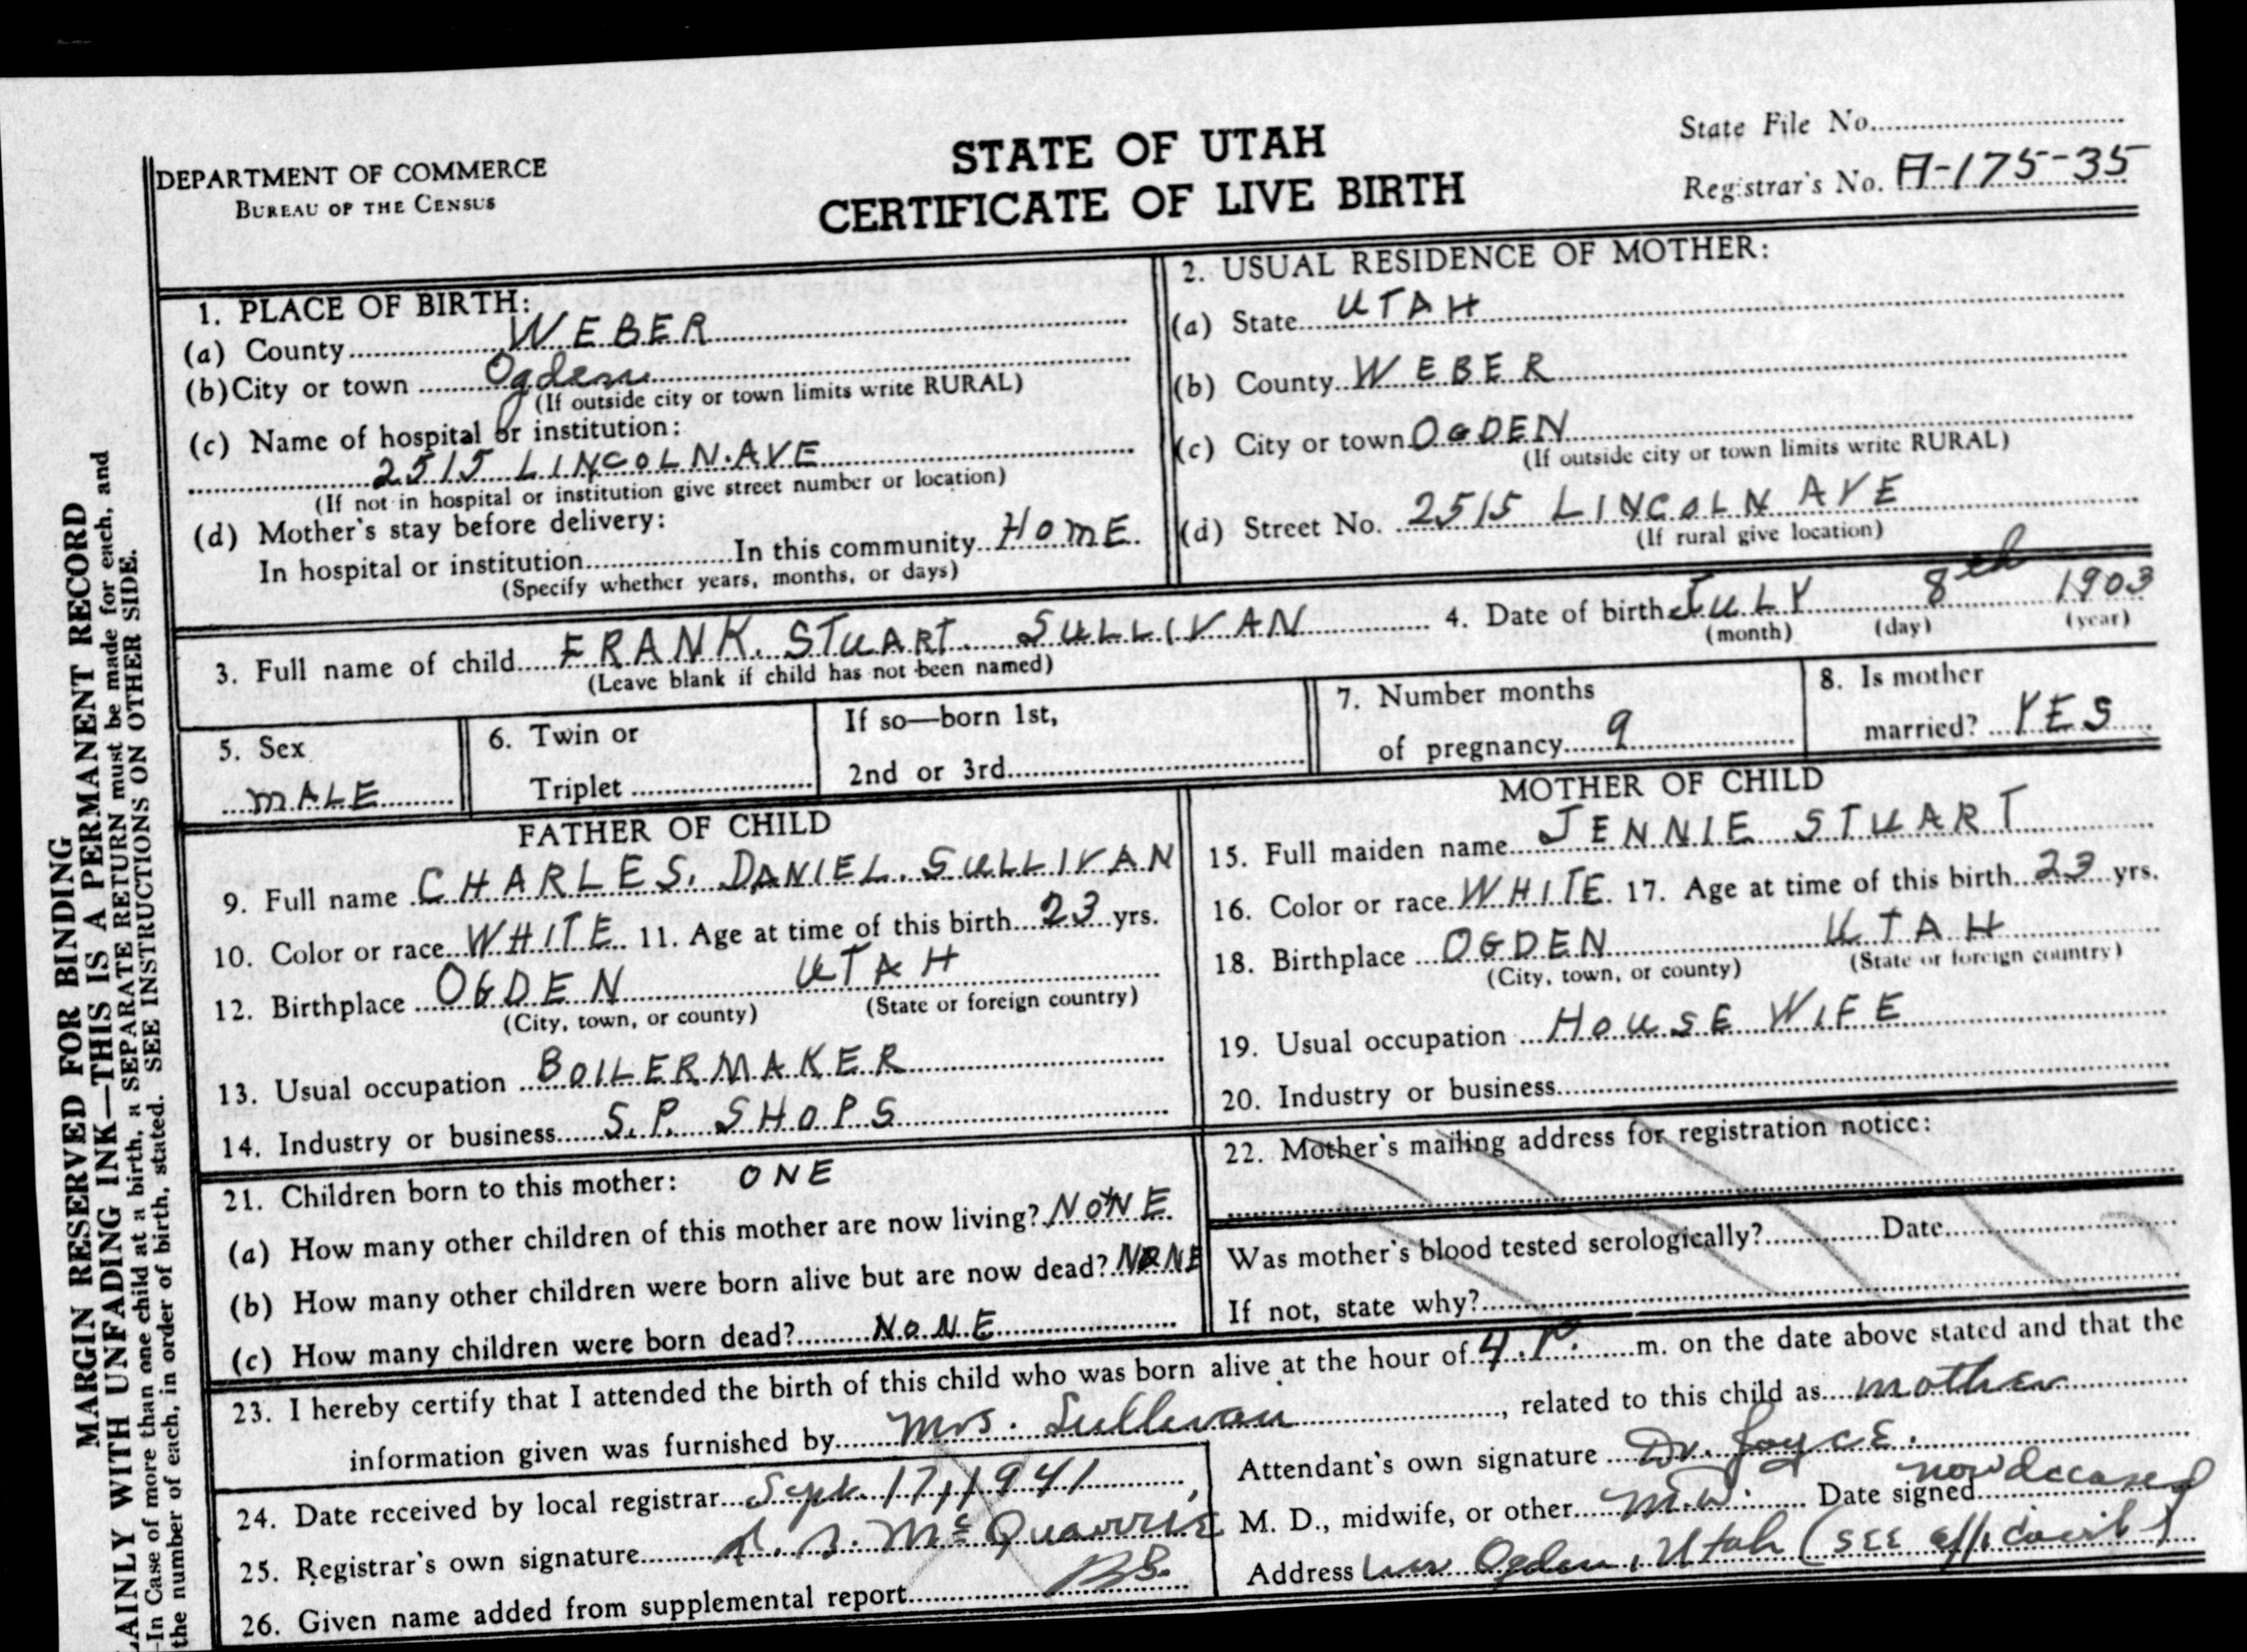 STATE OF UTAH
CERTIFICATE OF LIVE BIRTH
DEPARTMENT OF COMMERCE
BUREAU OF THE CENSUS
State File No.
Registrar's No. A-175-35
1. PLACE OF BIRTH:
(a) County WEBER
(b) City or town Ogden
(If outside city or town limits write RURAL)
(c) Name of hospital or institution:
2515 LINCOLN AVE
(If not in hospital or institution give street number or location)
(d) Mother's stay before delivery:
In hospital or institution In this community HOME
(Specify whether years, months, or days)
2. USUAL RESIDENCE OF MOTHER:
(a) State UTAH
(b) County WEBER
(c) City or town OGDEN
(If outside city or town limits write RURAL)
(d) Street No. 2515 LINCOLN AVE
(If rural give location)
3. Full name of child FRANK. STUART. SULLIVAN
(Leave blank if child has not been named)
4. Date of birth JULY 8th 1903
(month) (day) (year)
5. Sex
MALE
6. Twin or
Triplet
If so—born 1st,
2nd or 3rd
7. Number months
of pregnancy 9
8. Is mother
married? YES
FATHER OF CHILD
9. Full name CHARLES. DANIEL. SULLIVAN
10. Color or race WHITE 11. Age at time of this birth 23 yrs.
12. Birthplace OGDEN UTAH
(City, town, or county) (State or foreign country)
13. Usual occupation BOILERMAKER
14. Industry or business S.P. SHOPS
MOTHER OF CHILD
15. Full maiden name JENNIE STUART
16. Color or race WHITE 17. Age at time of this birth 23 yrs.
18. Birthplace OGDEN UTAH
(City, town, or county) (State or foreign country)
19. Usual occupation HOUSE WIFE
20. Industry or business
21. Children born to this mother: ONE
(a) How many other children of this mother are now living? NONE
(b) How many other children were born alive but are now dead? NONE
(c) How many children were born dead? NONE
22. Mother's mailing address for registration notice:
Was mother's blood tested serologically? Date
If not, state why?
23. I hereby certify that I attended the birth of this child who was born alive at the hour of 4.P. m. on the date above stated and that the
information given was furnished by Mrs. Sullivan, related to this child as mother
24. Date received by local registrar Sept. 17, 1941
25. Registrar's own signature McQuarrie
26. Given name added from supplemental report
Attendant's own signature Dr. Joyce.
M. D., midwife, or other M.D. Date signed now deceased
Address Ogden, Utah (see affidavit)
MARGIN RESERVED FOR BINDING
LAINLY WITH UNFADING INK—THIS IS A PERMANENT RECORD
In Case of more than one child at a birth, a SEPARATE RETURN must be made for each, and
the number of each, in order of birth, stated. SEE INSTRUCTIONS ON OTHER SIDE.